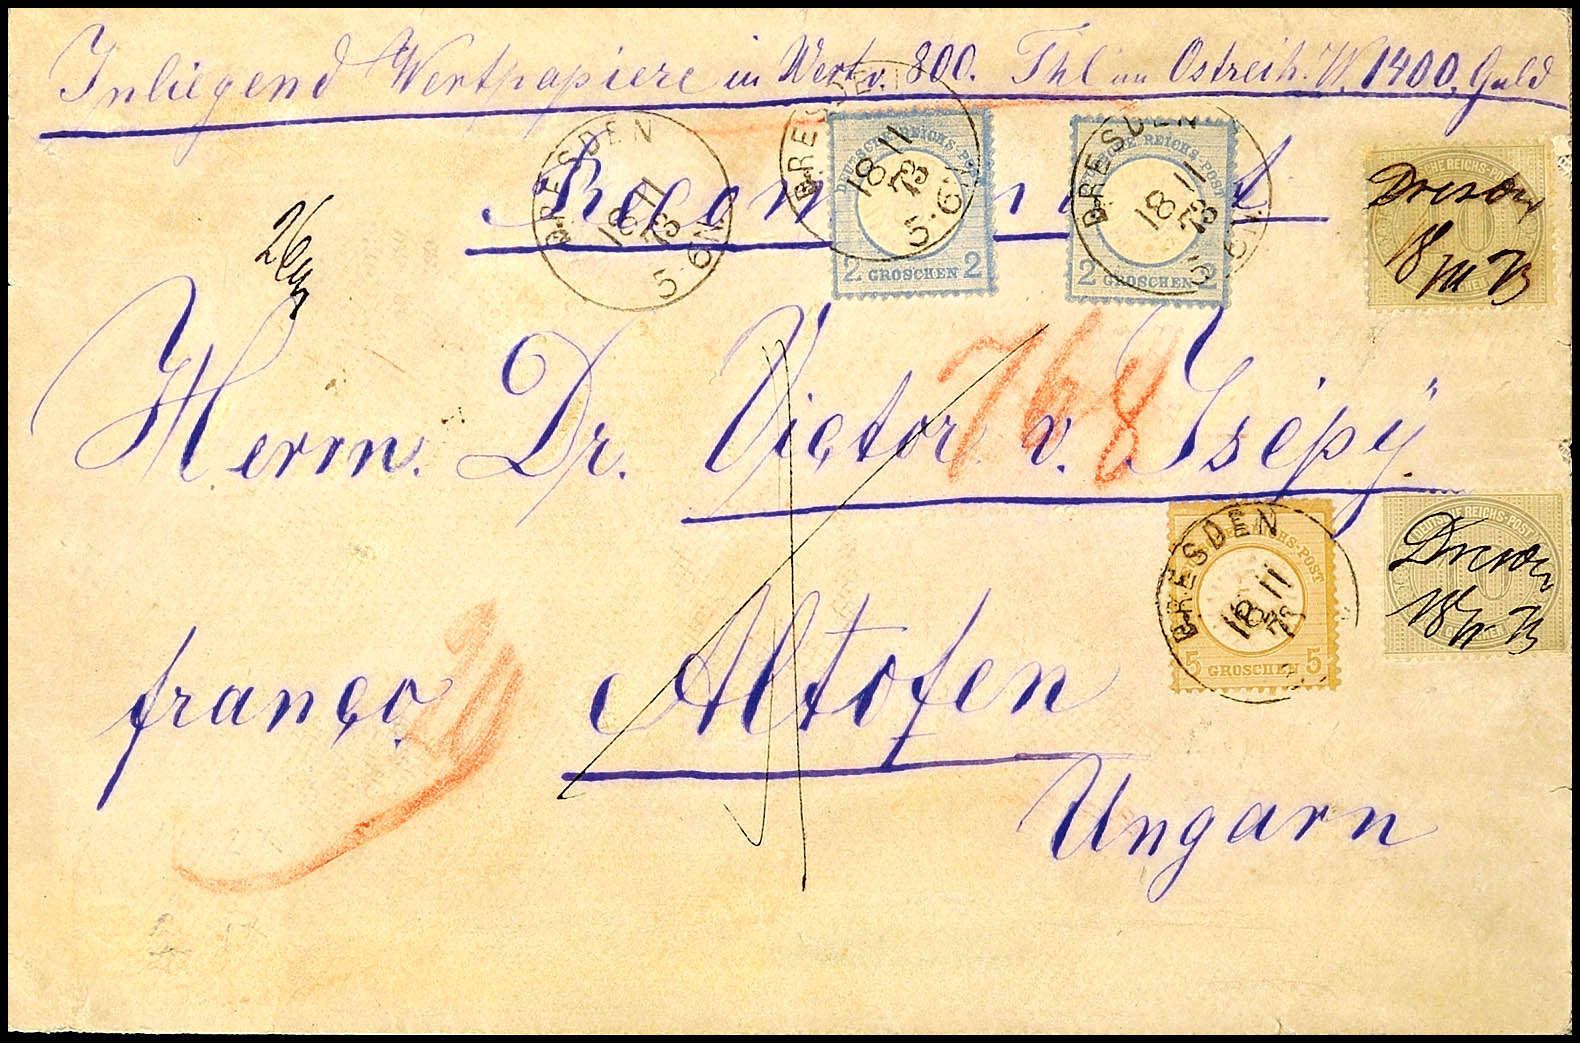 Inliegend Wertpapiere in Wert v. 800. Thl in Ostreih. W. 1400. Guld
Recom
DRESDEN
18 11
73
5-6N
DRESDEN
18 11
73
5-6N
DEUTSCHE REICHS-POST
2 GROSCHEN 2
DRESDEN
18 11
73
5-6N
DEUTSCHE REICHS-POST
2 GROSCHEN 2
DEUTSCHE REICHS-POST
Dresden
18/11 73
Herrn. Dr. Victor v. Iszépÿ.
768
DRESDEN
18 11
73
REICHS-POST
5 GROSCHEN 5
DEUTSCHE REICHS-POST
Dresden
18/11 73
franço. Altofen
Ungarn